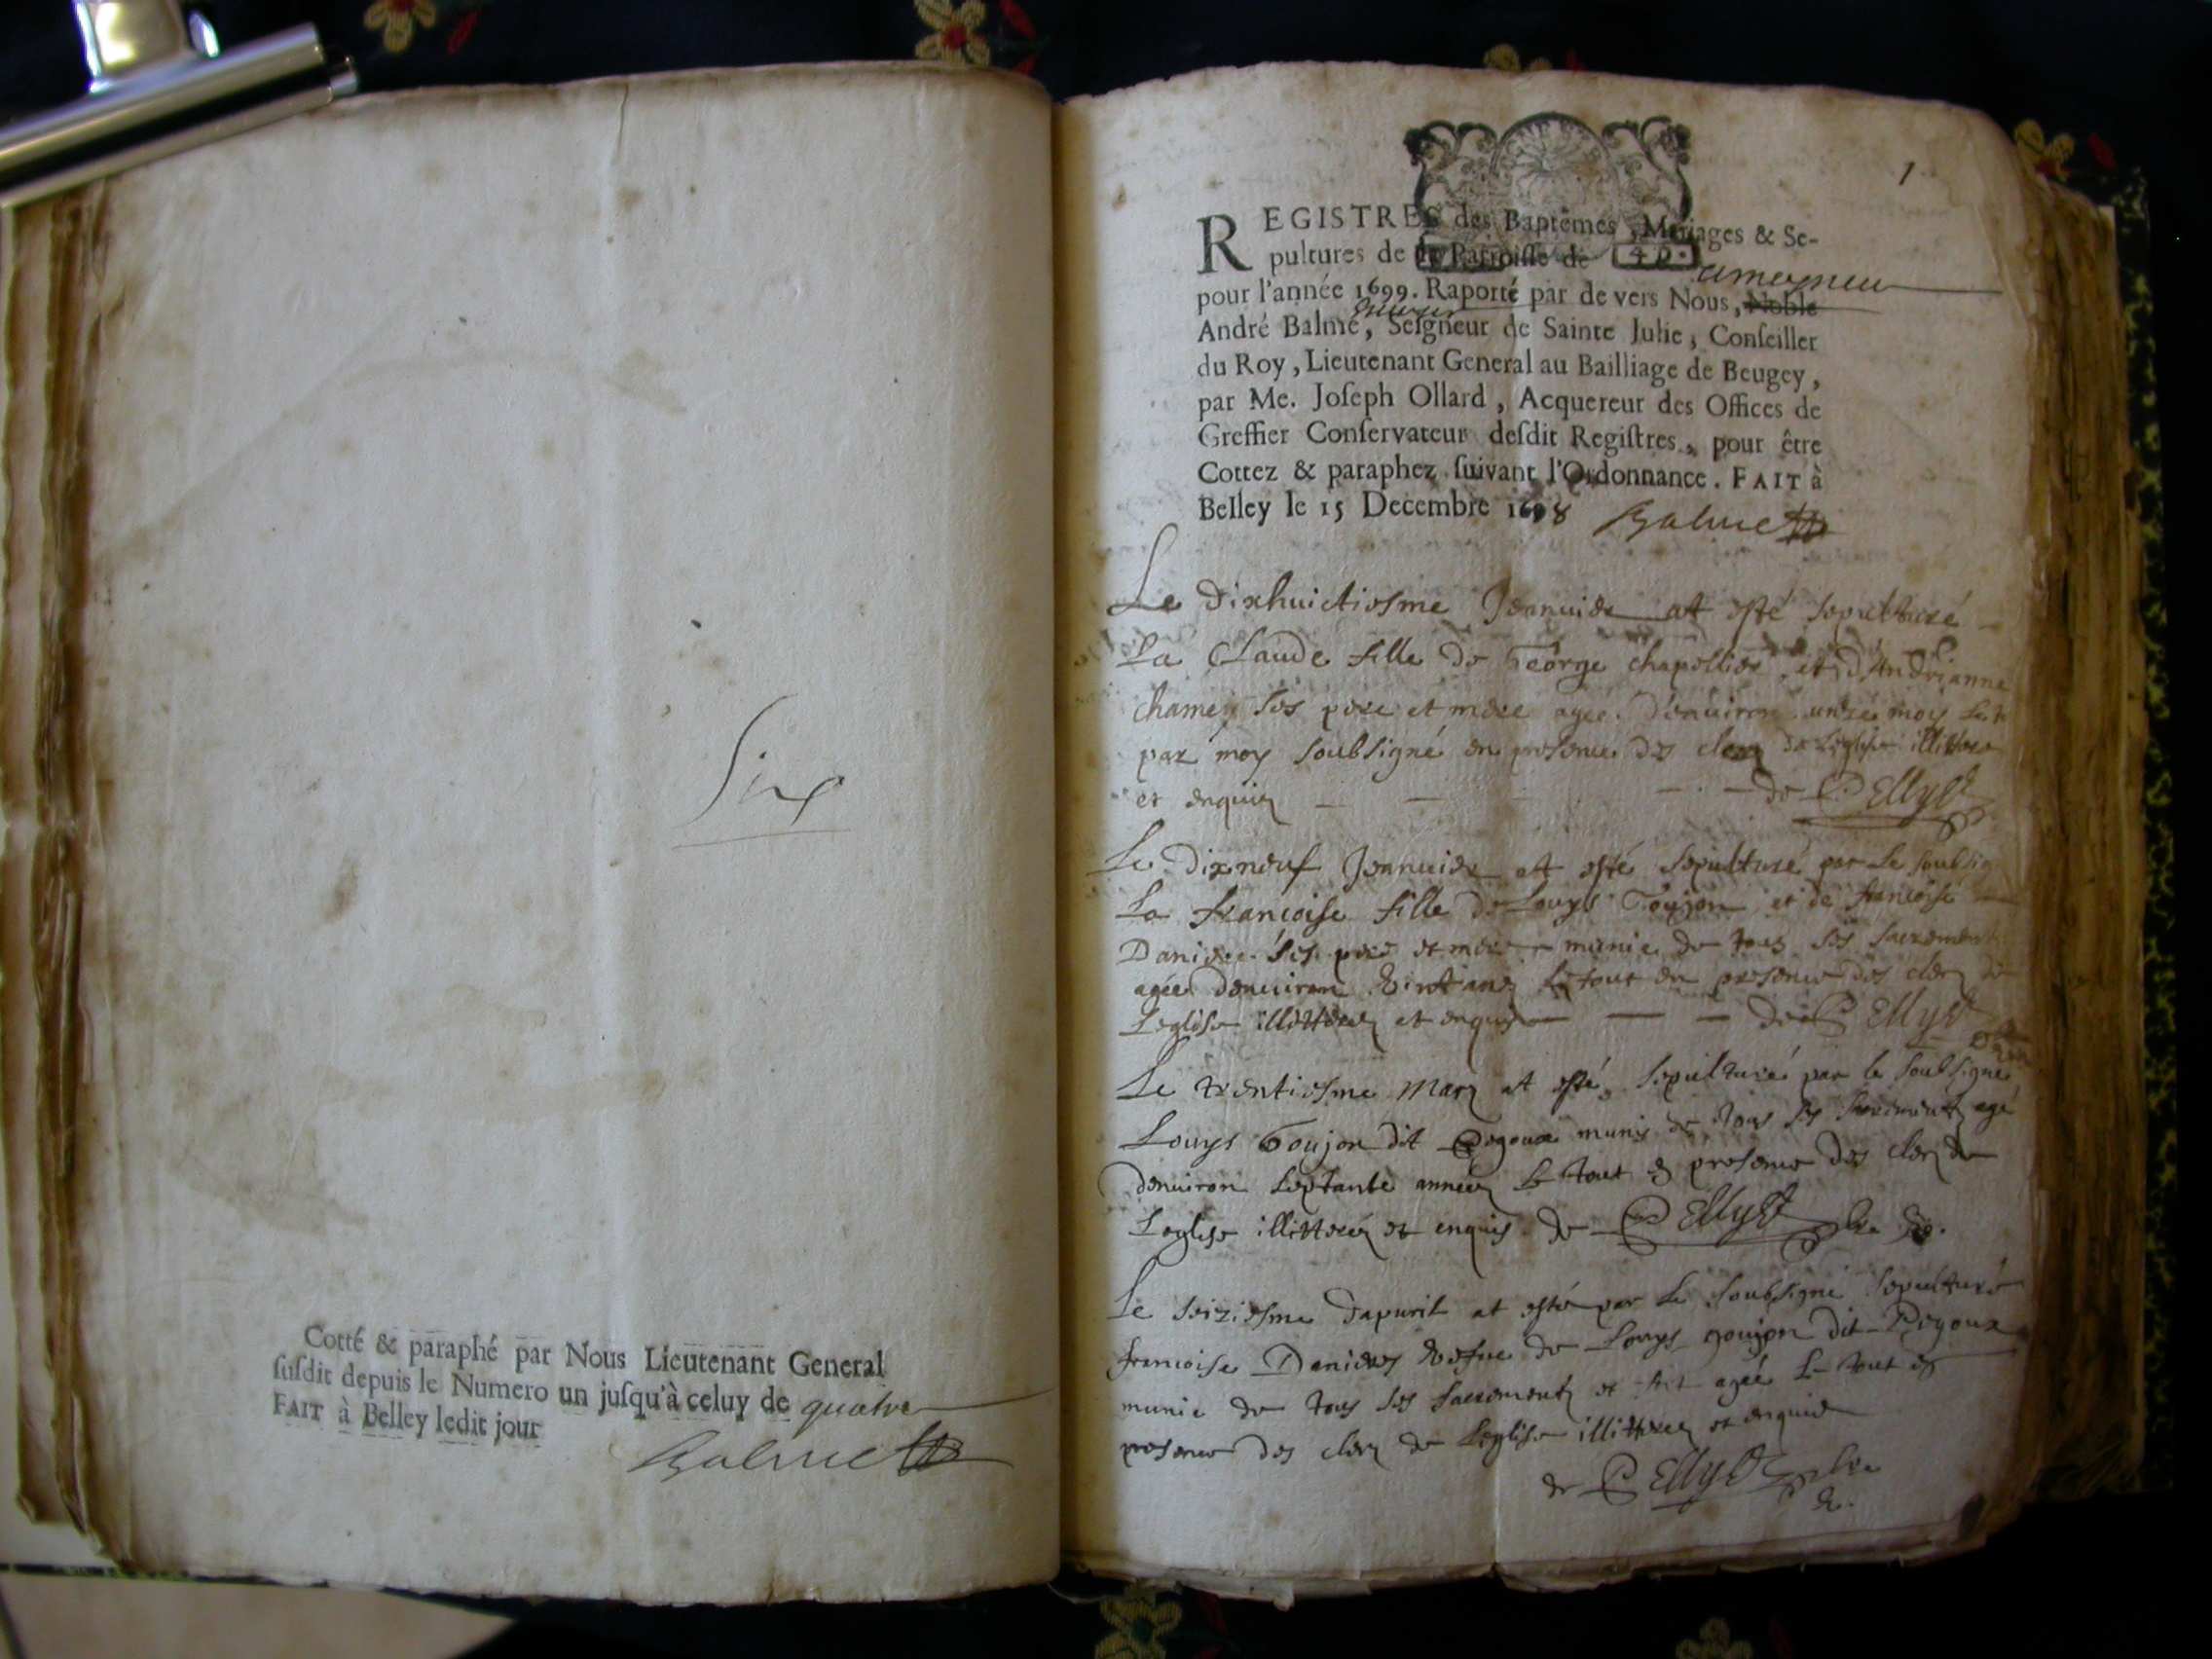 Six
Cotté & paraphé par Nous Lieutenant General
susdit depuis le Numero un jusqu'à celuy de quatre
FAIT à Belley ledit jour
Balme
1
REGISTRES des Baptêmes, Mariages & Se-
pultures de la Parroisse de
pour l'année 1699. Raporté par devers Nous, Noble
André Balme, Seigneur de Sainte Julie, Conseiller
du Roy, Lieutenant General au Bailliage de Beugey,
par Me. Joseph Ollard, Acquereur des Offices de
Greffier Conservateur desdit Registres, pour être
Cottez & paraphez suivant l'Ordonnance. FAIT à
Belley le 15 Decembre 1698 Balme
Le dixhuictiesme Jeanuier at esté sepulturé
La Claude fille de George chapellier et d'Andrianne
chamey ses pere et mere agée d'enuiron unze moys
par moy soubsigné en presence des clerz de Leglise illitterez
et enquis de Pellyst
Le dixneuf Jeanuier at esté sepulturé par Le soubsig
La francoise fille de Louys Goujon et de francoise
Daniere ses pere et mere munie de tous ses sacrement
agée denuiron vint ans Le tout en presence des clerz de
Leglise illitterez et enquis de Pellyst
Le trentiesme Marz at esté sepulturé par le soubsigné
Louys Goujon dit Pegoux munis de tous ses sacrementz agé
denuiron septante années Le tout en presence des clerz de
Leglise illitterez et enquis de Pellyst
Le seiziesme dapuril at esté par Le soubsigné sepulturé
francoise Danieres vefue de Louys goujon dit Pegoux
munie de tous ses sacrementz et agée Le tout en
presence des clerz de Leglise illitterez et enquis
de Pellyst